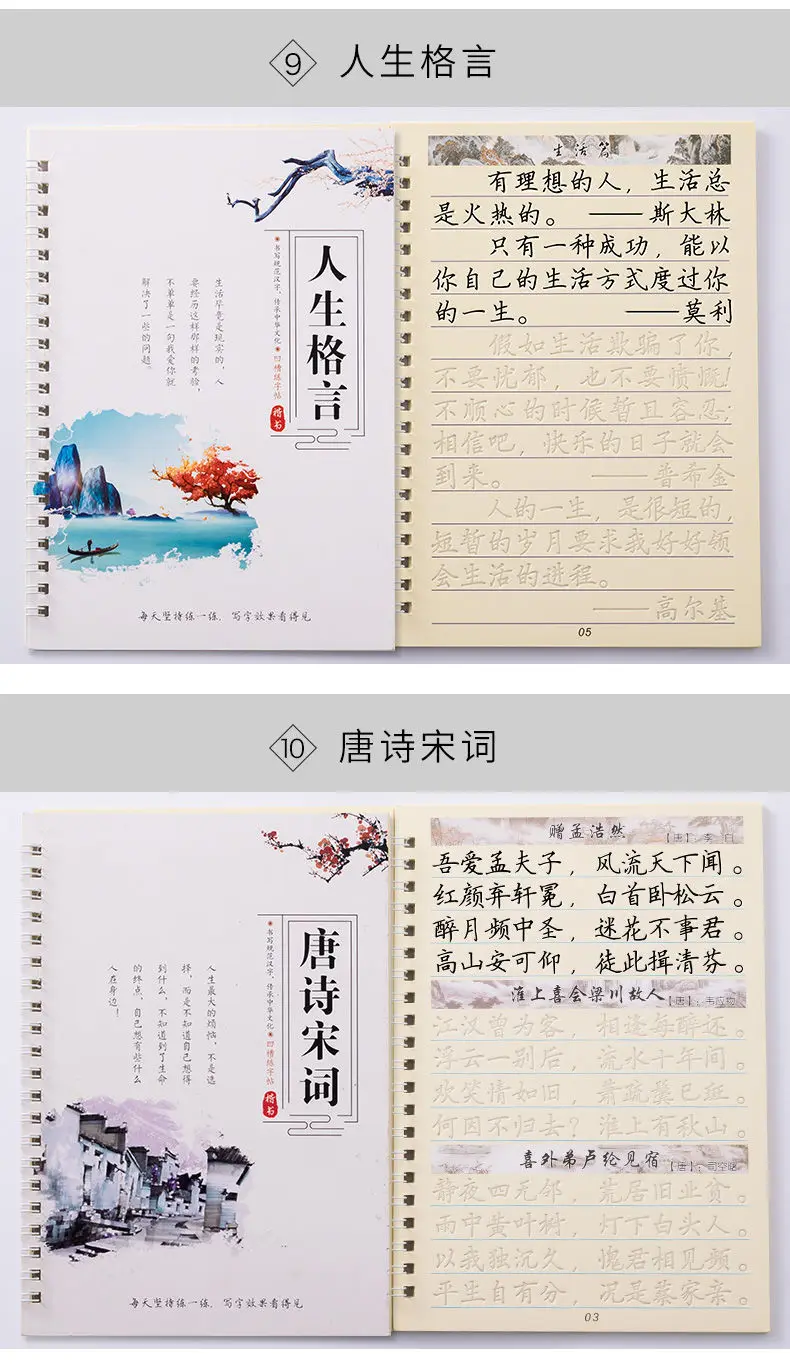 9 人生格言
人生格言
书写规范汉字、传承中华文化 凹槽练字帖
楷书
生活毕竟是现实的 人
要经历这样那样的考验,
不单单是一句我爱你就
解决了一些的问题。
每天坚持练一练, 写字效果看得见
生活篇
有理想的人，生活总
是火热的。 ——斯大林
只有一种成功，能以
你自己的生活方式度过你
的一生。 ——莫利
假如生活欺骗了你，
不要忧郁，也不要愤慨!
不顺心的时候暂且容忍;
相信吧，快乐的日子就会
到来。 ——普希金
人的一生，是很短的，
短暂的岁月要求我好好领
会生活的进程。
——高尔基
05
10 唐诗宋词
唐诗宋词
书写规范汉字、传承中华文化 凹槽练字帖
楷书
人生最大的烦恼, 不是选
择, 而是不知道自己想得
到什么, 不知道到了生命
的终点, 自己想有些什么
人在身边!
每天坚持练一练, 写字效果看得见
赠孟浩然 【唐】: 李 白
吾爱孟夫子，风流天下闻。
红颜弃轩冕，白首卧松云。
醉月频中圣，迷花不事君。
高山安可仰，徒此揖清芬。
淮上喜会梁川故人 【唐】: 韦应物
江汉曾为客，相逢每醉还。
浮云一别后，流水十年间。
欢笑情如旧，萧疏鬓已斑。
何因不归去？淮上有秋山。
喜外弟卢纶见宿 【唐】: 司空曙
静夜四无邻，荒居旧业贫。
雨中黄叶树，灯下白头人。
以我独沉久，愧君相见频。
平生自有分，况是蔡家亲。
03